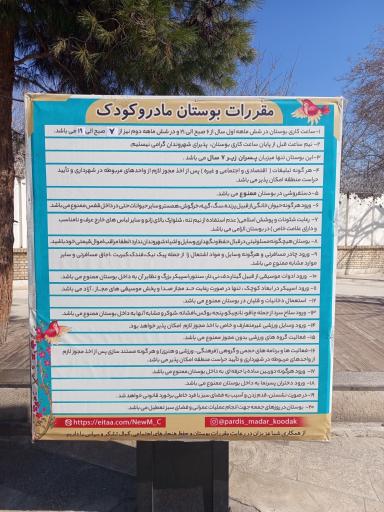 مقررات بوستان مادر و کودک
۱- ساعت کاری بوستان در شش ماهه اول سال از ۶ صبح الی ۲۱ و در شش ماهه دوم نیز از ۷ صبح الی ۱۹ می باشد.
۲- نیم ساعت قبل از پایان ساعت کاری بوستان، پذیرای شهروندان گرامی نیستیم.
۳- این بوستان تنها میزبان پسران زیر ۷ سال می باشد.
۴- هر گونه تبلیغات ( اقتصادی و اجتماعی و غیره ) پس از اخذ مجوز لازم از واحدهای مربوطه در شهرداری و تأیید
حراست منطقه امکان پذیر می باشد.
۵- دستفروشی در بوستان ممنوع می باشد.
۶- ورود هرگونه حیوان خانگی از قبیل پرنده، سگ، گربه، خرگوش، همستر و سایر حیوانات حتی در داخل قفس ممنوع می باشد.
۷- رعایت شئونات و پوشش اسلامی( عدم استفاده از نیم تنه، شلوارک بالای زانو و سایر لباس های خارج عرف و نامناسب
و دارای علامت خاص ) در بوستان الزامی می باشد.
۸- بوستان هیچگونه مسئولیتی در قبال حفظ و نگهداری وسایل و اشیاء شهروندان ندارد لطفا مراقب اموال قیمتی خود باشید.
۹- ورود چادر مسافرتی و هرگونه وسایل و مواد اشتعال زا از جمله پیک نیک، فندک، کبریت، اجاق مسافرتی و سایر
موارد مشابه ممنوع می باشد.
۱۰- ورود ادوات موسیقی از قبیل گیتار، دف، نی، تار، سنتور، اسپیکر بزرگ و نظایر آن به داخل بوستان ممنوع می باشد.
۱۱- ورود اسپیکر در ابعاد کوچک ، تنها در صورت رعایت حد مجاز صدا و پخش موسیقی های مجاز، آزاد می باشد.
۱۲- استعمال دخانیات و قلیان در بوستان ممنوع می باشد.
۱۳- ورود سلاح سرد از جمله چاقو، نانچیکو، پنجه بوکس، افشانه، شوکر و مشابه آنها به داخل بوستان ممنوع می باشد.
۱۴- ورود وسایل ورزشی غیرمتعارف و خاص با اخذ مجوز لازم امکان پذیر خواهد بود.
۱۵- فعالیت گروه های ورزشی بدون مجوز ممنوع می باشد.
۱۶- فعالیت ها و برنامه های جمعی و گروهی (فرهنگی، ورزشی و هنری) و هرگونه مستند سازی پس از اخذ مجوز لازم
از واحدهای مربوطه در شهرداری و تأیید حراست منطقه امکان پذیر می باشد.
۱۷- ورود هرگونه دوربین ساده یا حرفه ای به داخل بوستان ممنوع می باشد.
۱۸- ورود دختران پسرنما به داخل بوستان ممنوع می باشد.
۱۹- در صورت نشستن، قدم زدن و آسیب به فضای سبز با فرد خاطی برخورد قانونی خواهد شد.
۲۰- بوستان در روزهای جمعه جهت انجام عملیات عمرانی و فضای سبز تعطیل می باشد.
https://eitaa.com/NewM_C
@pardis_madar_koodak
از همکاری شما عزیزان در رعایت مقررات بوستان و حفظ هنجارهای اجتماعی کمال تشکر و سپاس را داریم